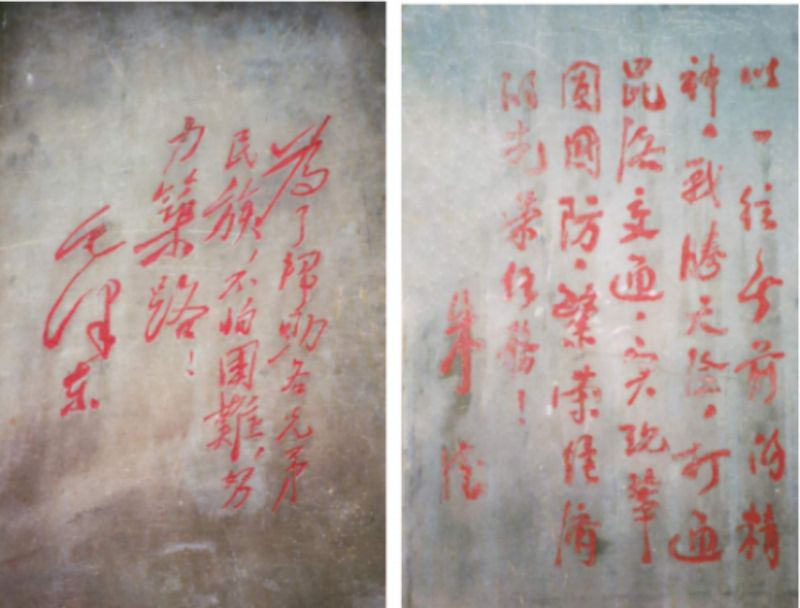 為了帮助各兄弟
民族，不怕困難，努
力築路！
毛泽东
以一往无前的精
神，戰勝天险，打通
昆洛交通，实现鞏
固國防，繁荣经济
的光荣任務！
朱德